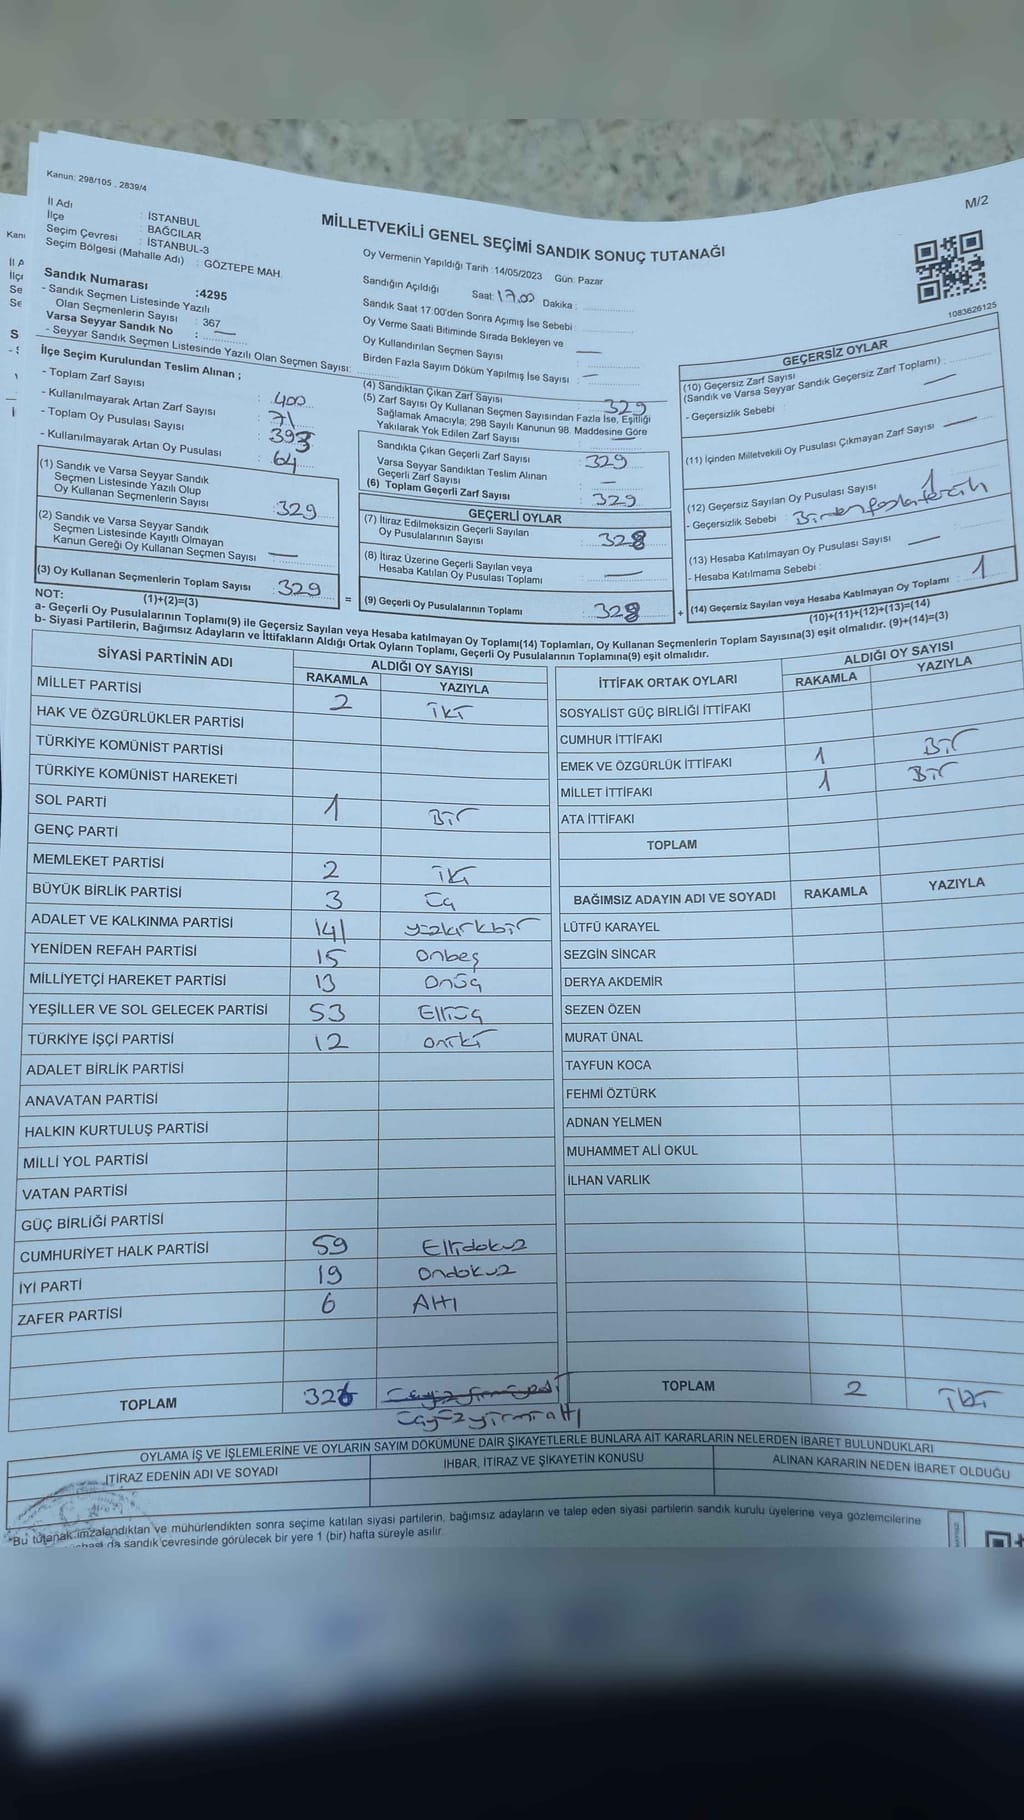 Kanun: 298/105 , 2839/4
M/2
MİLLETVEKİLİ GENEL SEÇİMİ SANDIK SONUÇ TUTANAĞI
İl Adı : İSTANBUL
İlçe : BAĞCILAR
Seçim Çevresi : İSTANBUL-3
Seçim Bölgesi (Mahalle Adı) : GÖZTEPE MAH.
Sandık Numarası :4295
- Sandık Seçmen Listesinde Yazılı
Olan Seçmenlerin Sayısı : 367
Varsa Seyyar Sandık No : —
- Seyyar Sandık Seçmen Listesinde Yazılı Olan Seçmen Sayısı:
İlçe Seçim Kurulundan Teslim Alınan ;
- Toplam Zarf Sayısı : 400
- Kullanılmayarak Artan Zarf Sayısı : 71
- Toplam Oy Pusulası Sayısı : 393
- Kullanılmayarak Artan Oy Pusulası : 64
(1) Sandık ve Varsa Seyyar Sandık
Seçmen Listesinde Yazılı Olup
Oy Kullanan Seçmenlerin Sayısı : 329
(2) Sandık ve Varsa Seyyar Sandık
Seçmen Listesinde Kayıtlı Olmayan
Kanun Gereği Oy Kullanan Seçmen Sayısı : —
(3) Oy Kullanan Seçmenlerin Toplam Sayısı : 329
(1)+(2)=(3)
Oy Vermenin Yapıldığı Tarih :14/05/2023 Gün: Pazar
Sandığın Açıldığı Saat: 17.00 Dakika :
Sandık Saat 17:00'den Sonra Açımış İse Sebebi :
Oy Verme Saati Bitiminde Sırada Bekleyen ve
Oy Kullandırılan Seçmen Sayısı : —
Birden Fazla Sayım Döküm Yapılmış İse Sayısı : —
(4) Sandıktan Çıkan Zarf Sayısı : 329
(5) Zarf Sayısı Oy Kullanan Seçmen Sayısından Fazla İse, Eşitliği
Sağlamak Amacıyla; 298 Sayılı Kanunun 98. Maddesine Göre
Yakılarak Yok Edilen Zarf Sayısı : —
Sandıkta Çıkan Geçerli Zarf Sayısı : 329
Varsa Seyyar Sandıktan Teslim Alınan
Geçerli Zarf Sayısı : —
(6) Toplam Geçerli Zarf Sayısı : 329
GEÇERLİ OYLAR
(7) İtiraz Edilmeksizin Geçerli Sayılan
Oy Pusulalarının Sayısı : 328
(8) İtiraz Üzerine Geçerli Sayılan veya
Hesaba Katılan Oy Pusulası Toplamı : —
= (9) Geçerli Oy Pusulalarının Toplamı : 328
1083626125
GEÇERSİZ OYLAR
(10) Geçersiz Zarf Sayısı
(Sandık ve Varsa Seyyar Sandık Geçersiz Zarf Toplamı) :
- Geçersizlik Sebebi : —
(11) İçinden Milletvekili Oy Pusulası Çıkmayan Zarf Sayısı : —
(12) Geçersiz Sayılan Oy Pusulası Sayısı : 1
- Geçersizlik Sebebi : Birden fazla tercih
(13) Hesaba Katılmayan Oy Pusulası Sayısı : —
- Hesaba Katılmama Sebebi :
+ (14) Geçersiz Sayılan veya Hesaba Katılmayan Oy Toplamı : 1
(10)+(11)+(12)+(13)=(14)
NOT:
a- Geçerli Oy Pusulalarının Toplamı(9) ile Geçersiz Sayılan veya Hesaba katılmayan Oy Toplamı(14) Toplamları, Oy Kullanan Seçmenlerin Toplam Sayısına(3) eşit olmalıdır. (9)+(14)=(3)
b- Siyasi Partilerin, Bağımsız Adayların ve İttifakların Aldığı Ortak Oyların Toplamı, Geçerli Oy Pusulalarının Toplamına(9) eşit olmalıdır.
SİYASİ PARTİNİN ADI ALDIĞI OY SAYISI
RAKAMLA YAZIYLA
MİLLET PARTİSİ 2 iki
HAK VE ÖZGÜRLÜKLER PARTİSİ
TÜRKİYE KOMÜNİST PARTİSİ
TÜRKİYE KOMÜNİST HAREKETİ
SOL PARTİ 1 Bir
GENÇ PARTİ
MEMLEKET PARTİSİ 2 iki
BÜYÜK BİRLİK PARTİSİ 3 üç
ADALET VE KALKINMA PARTİSİ 141 yüzkırkbir
YENİDEN REFAH PARTİSİ 15 onbeş
MİLLİYETÇİ HAREKET PARTİSİ 13 onüç
YEŞİLLER VE SOL GELECEK PARTİSİ 53 Elliüç
TÜRKİYE İŞÇİ PARTİSİ 12 oniki
ADALET BİRLİK PARTİSİ
ANAVATAN PARTİSİ
HALKIN KURTULUŞ PARTİSİ
MİLLİ YOL PARTİSİ
VATAN PARTİSİ
GÜÇ BİRLİĞİ PARTİSİ
CUMHURİYET HALK PARTİSİ 59 Ellidokuz
İYİ PARTİ 19 ondokuz
ZAFER PARTİSİ 6 Altı
TOPLAM 326
üçyüzyirmialtı
İTTİFAK ORTAK OYLARI ALDIĞI OY SAYISI
RAKAMLA YAZIYLA
SOSYALİST GÜÇ BİRLİĞİ İTTİFAKI
CUMHUR İTTİFAKI
EMEK VE ÖZGÜRLÜK İTTİFAKI 1 Bir
MİLLET İTTİFAKI 1 Bir
ATA İTTİFAKI
TOPLAM
BAĞIMSIZ ADAYIN ADI VE SOYADI RAKAMLA YAZIYLA
LÜTFÜ KARAYEL
SEZGİN SİNCAR
DERYA AKDEMİR
SEZEN ÖZEN
MURAT ÜNAL
TAYFUN KOCA
FEHMİ ÖZTÜRK
ADNAN YELMEN
MUHAMMET ALİ OKUL
İLHAN VARLIK
TOPLAM 2 iki
OYLAMA İŞ VE İŞLEMLERİNE VE OYLARIN SAYIM DÖKÜMÜNE DAİR ŞİKAYETLERLE BUNLARA AİT KARARLARIN NELERDEN İBARET BULUNDUKLARI
İTİRAZ EDENİN ADI VE SOYADI İHBAR, İTİRAZ VE ŞİKAYETİN KONUSU ALINAN KARARIN NEDEN İBARET OLDUĞU
*Bu tutanak imzalandıktan ve mühürlendikten sonra seçime katılan siyasi partilerin, bağımsız adayların ve talep eden siyasi partilerin sandık kurulu üyelerine veya gözlemcilerine
da sandık çevresinde görülecek bir yere 1 (bir) hafta süreyle asılır.